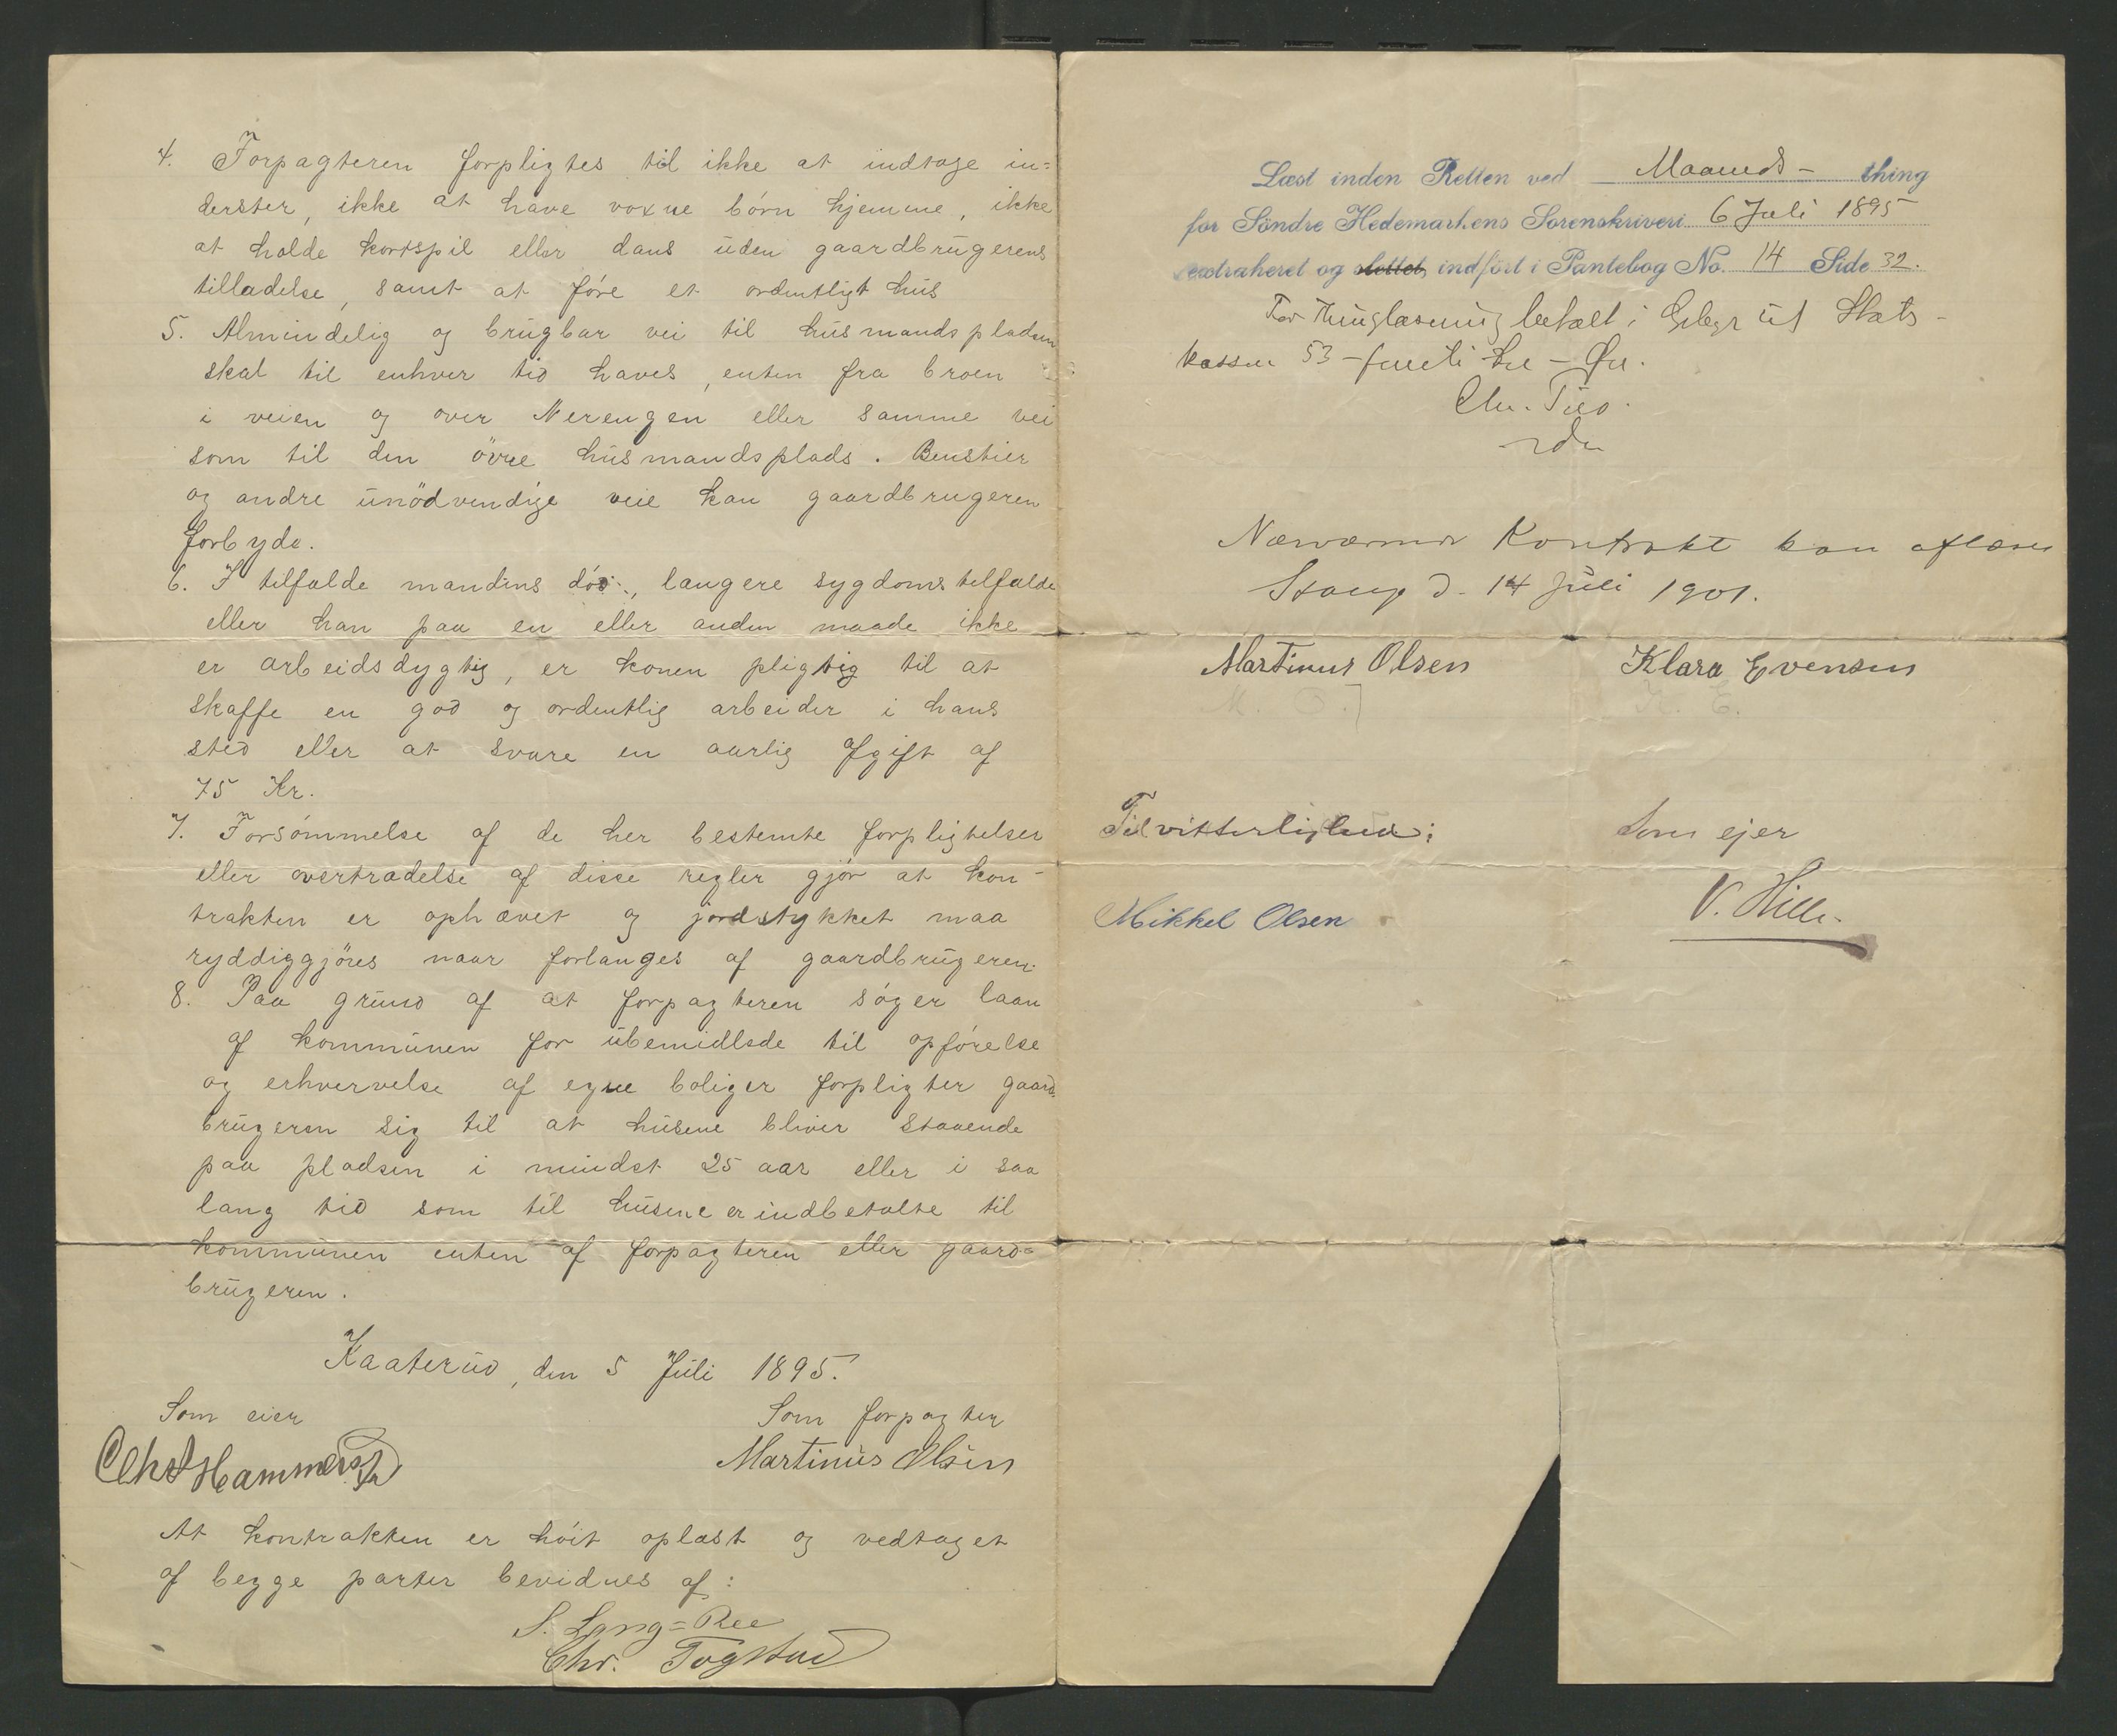 4. Forpagteren forpligtes til ikke at indtage in=
derster, ikke at have voxne børn hjemme, ikke
at holde kortspil eller dans uden gaardbrugerens
tilladelse, samt at føre et ordentligt hus
5. Almindelig og brugbar vei til husmandspladsen
skal til enhver tid haves, enten fra broen
i veien og over Nerengen eller samme vei
som til den övre husmandsplads. Benstier
og andre unödvendige veie kan gaardbrugeren
forbyde.
6. I tilfælde mandens død, længere sygdomstilfælde
eller han paa en eller anden maade ikke
er arbeidsdygtig, er konen pligtig til at
skaffe en god og ordentlig arbeider i hans
sted eller at svare en aarlig Afgift af
75 Kr.
7. Forsømmelse af de her bestemte forpligtelser
eller overtrædelse af disse regler gjør at kon-
trakten er ophævet og jordstykket maa
ryddiggjöres naar forlanges af gaardbrugeren.
8. Paa grund af at forpagteren søger laan
af kommunen for ubemidlede til opførelse
og erhvervelse af egne boliger forpligter gaard-
brugeren sig til at husene bliver staaende
paa pladsen i mindst 25 aar eller i saa
lang tid som til husene er indbetalte til
kommunen enten af forpagteren eller gaard=
brugeren.
Kaaterud, den 5 Juli 1895.
Som eier Som forpagter
Chr Hammerstad Martinus Olsen
At kontrakten er høit oplæst og vedtaget
af begge parter bevidnes af:
S. Lang=Ree
Chr. Togstad
Læst inden Retten ved Maaneds- thing
for Söndre Hedemarkens Sorenskriveri 6 Juli 1895
extraheret og slettet indfört i Pantebog No. 14 Side 32.
For Thinglæsning betalt i Gebyr til Stats-
kassen 53 - femti tre - Øre.
Nærværende Kontrakt kan aflæses
Stange d. 14 Juli 1901.
Martinus Olsen Klara Evensen
M. O. K. E.
Til vitterlighed: Som ejer
Mikkel Olsen V. Hille.